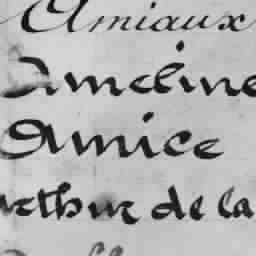 Amiaux
Ameline
Amice
Arthur de la